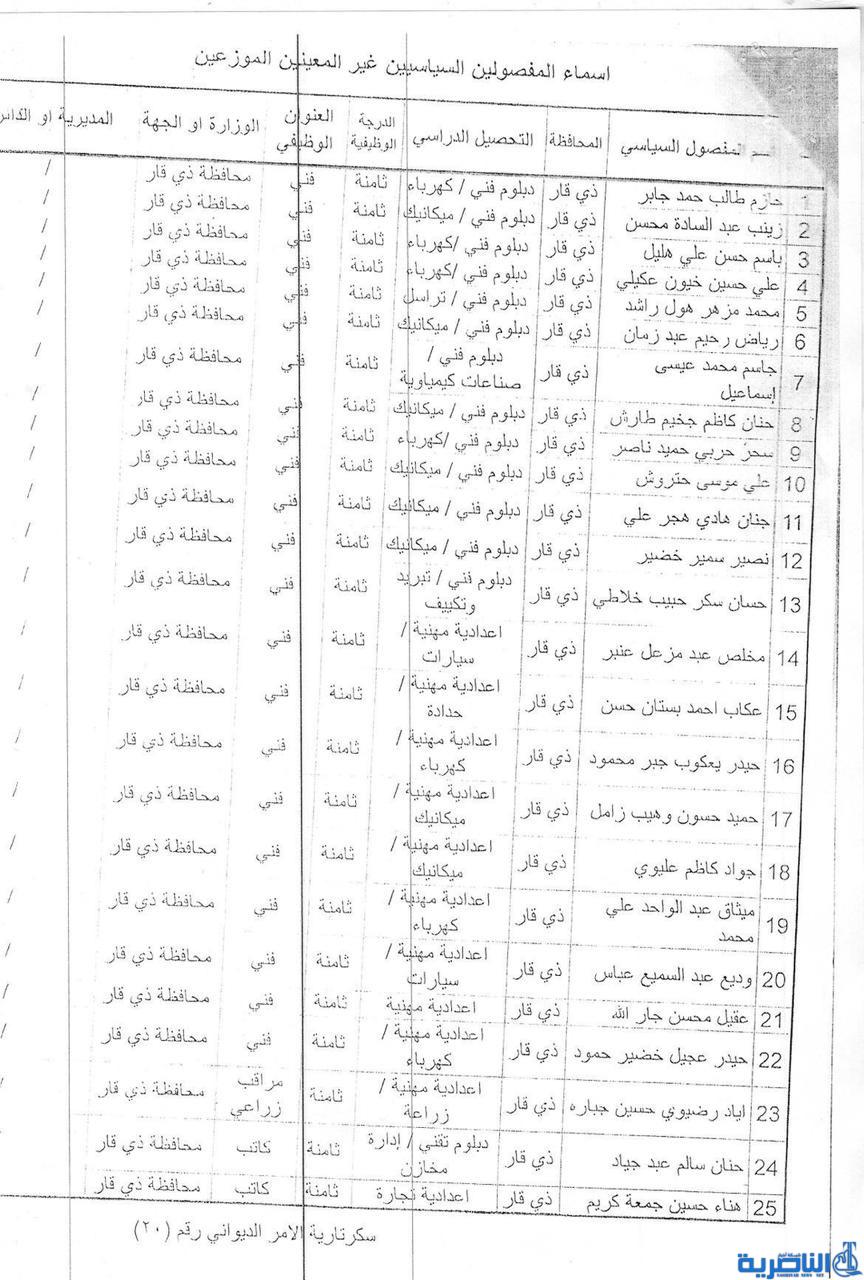 اسماء المفصولين السياسيين غير المعينين الموزعين
المفصول السياسي المحافظة التحصيل الدراسي الدرجة الوظيفية العنوان الوظيفي الوزارة او الجهة المديرية او
1 حازم طالب حمد جابر ذي قار دبلوم فني / كهرباء ثامنة فني محافظة ذي قار /
2 زينب عبد السادة محسن ذي قار دبلوم فني / ميكانيك ثامنة فني محافظة ذي قار /
3 باسم حسن علي هليل ذي قار دبلوم فني /كهرباء ثامنة فني محافظة ذي قار /
4 علي حسين خيون عكيلي ذي قار دبلوم فني /كهرباء ثامنة فني محافظة ذي قار /
5 محمد مزهر هول راشد ذي قار دبلوم فني / تراسل ثامنة فني محافظة ذي قار /
6 رياض رحيم عبد زمان ذي قار دبلوم فني / ميكانيك ثامنة فني محافظة ذي قار /
7 جاسم محمد عيسى إسماعيل ذي قار دبلوم فني / صناعات كيمياوية ثامنة فني محافظة ذي قار /
8 حنان كاظم جخيم طارش ذي قار دبلوم فني / ميكانيك ثامنة فني محافظة ذي قار /
9 سحر حربي حميد ناصر ذي قار دبلوم فني /كهرباء ثامنة فني محافظة ذي قار /
10 علي موسى حتروش ذي قار دبلوم فني / ميكانيك ثامنة فني محافظة ذي قار /
11 جنان هادي هجر علي ذي قار دبلوم فني / ميكانيك ثامنة فني محافظة ذي قار /
12 نصير سمير خضير ذي قار دبلوم فني / ميكانيك ثامنة فني محافظة ذي قار /
13 حسان سكر حبيب خلاطي ذي قار دبلوم فني / تبريد وتكييف ثامنة فني محافظة ذي قار /
14 مخلص عبد مزعل عنبر ذي قار اعدادية مهنية / سيارات ثامنة فني محافظة ذي قار /
15 عكاب احمد بستان حسن ذي قار اعدادية مهنية / حدادة ثامنة فني محافظة ذي قار /
16 حيدر يعكوب جبر محمود ذي قار اعدادية مهنية / كهرباء ثامنة فني محافظة ذي قار /
17 حميد حسون وهيب زامل ذي قار اعدادية مهنية / ميكانيك ثامنة فني محافظة ذي قار /
18 جواد كاظم عليوي ذي قار اعدادية مهنية / ميكانيك ثامنة فني محافظة ذي قار /
19 ميثاق عبد الواحد علي محمد ذي قار اعدادية مهنية / كهرباء ثامنة فني محافظة ذي قار /
20 وديع عبد السميع عباس ذي قار اعدادية مهنية / سيارات ثامنة فني محافظة ذي قار /
21 عقيل محسن جار الله ذي قار اعدادية مهنية ثامنة فني محافظة ذي قار /
22 حيدر عجيل خضير حمود ذي قار اعدادية مهنية / كهرباء ثامنة فني محافظة ذي قار /
23 اياد رضيوي حسين جباره ذي قار اعدادية مهنية / زراعة ثامنة مراقب زراعي محافظة ذي قار /
24 حنان سالم عبد جياد ذي قار دبلوم تقني / إدارة مخازن ثامنة كاتب محافظة ذي قار
25 هناء حسين جمعة كريم ذي قار اعدادية تجارة ثامنة كاتب محافظة ذي قار
سكرتارية الامر الديواني رقم (٢٠)
شبكة أخبار
الناصرية
NASIRIYAH NEWS NET